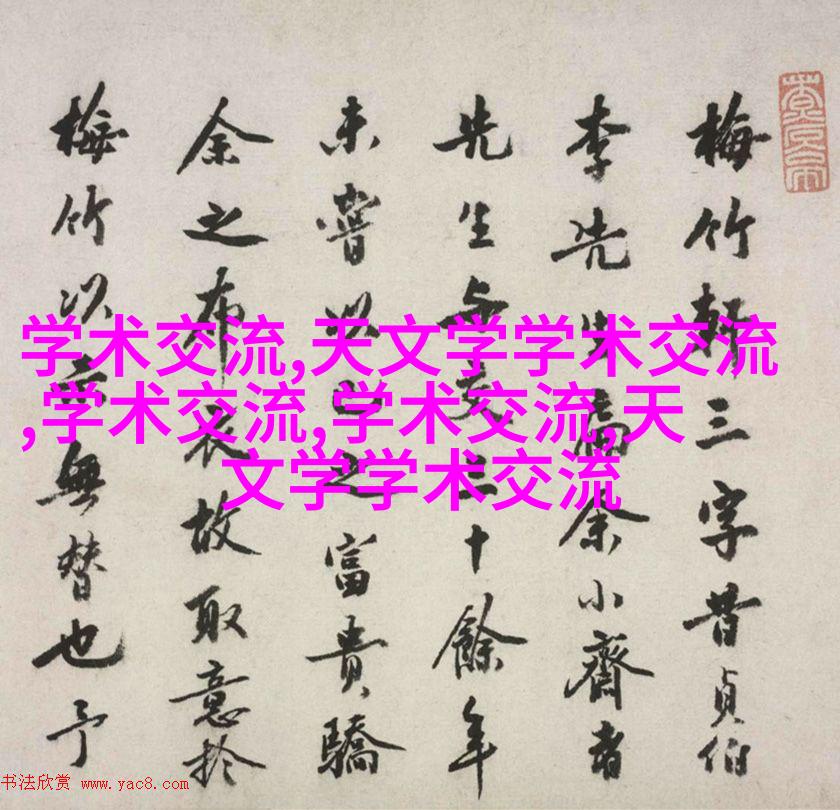 梅竹軒三字昔貞伯
李先生扁余小齋者
先生与交十餘年
未嘗以己之富貴驕
余之布衣故取意於
梅竹以示無替也予
学术交流,天文学学术交流
,学术交流,学术交流,天
文学学术交流
书法欣赏 www.yac8.com